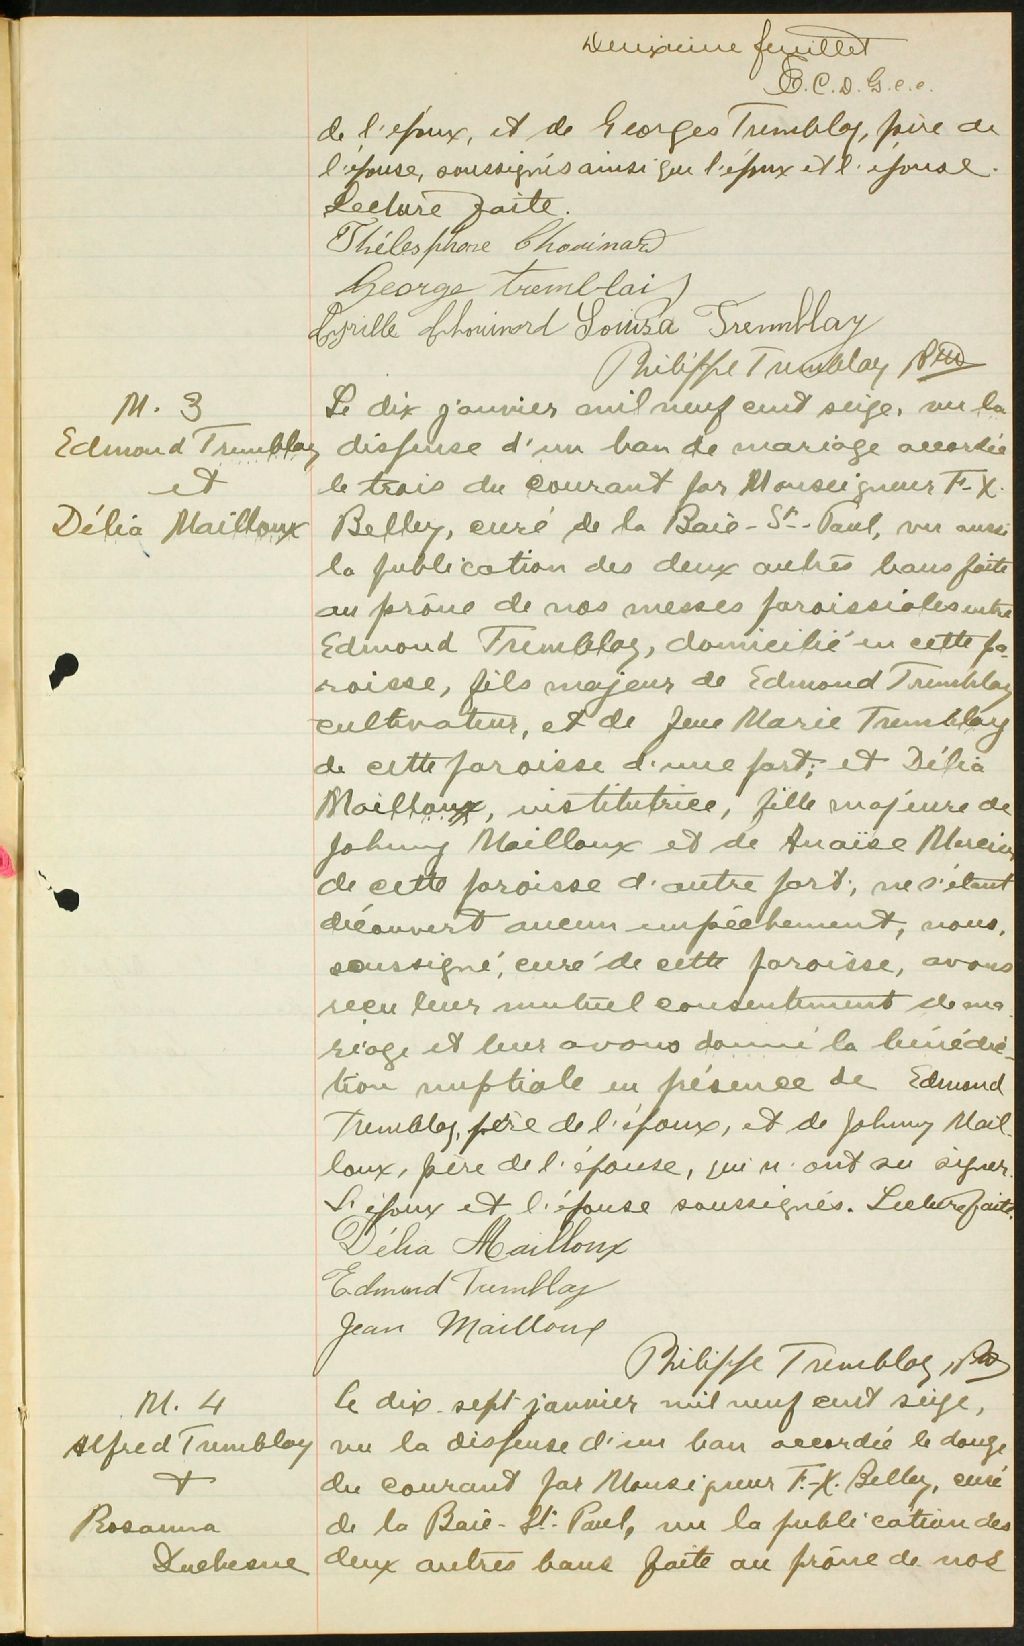 Deuxième feuillet
C. D. G. c. c.
de l'époux, et de Georges Tremblay, père de
l'épouse, soussignés ainsi que l'époux et l'épouse.
Lecture faite.
Thélesphore Chouinard
George tremblais
Cyrille Chouinard Louisa Tremblay
Philippe Tremblay Ptre
M. 3
Edmond Tremblay
et
Délia Mailloux
Le dix janvier mil neuf cent seize, vu la
dispense d'un ban de mariage accordée
le trois du courant par Monseigneur F.-X.
Belley, curé de la Baie-St-Paul, vu aussi
la publication des deux autres bans faite
au prône de nos messes paroissiales entre
Edmond Tremblay, domicilié en cette pa-
roisse, fils majeur de Edmond Tremblay
cultivateur, et de feue Marie Tremblay
de cette paroisse d'une part; et Délia
Mailloux, institutrice, fille majeure de
Johnny Mailloux et de Anaïse Mercier
de cette paroisse d'autre part; ne s'étant
découvert aucun empêchement, nous,
soussigné, curé de cette paroisse, avons
reçu leur mutuel consentement de ma-
riage et leur avons donné la bénédic-
tion nuptiale en présence de Edmond
Tremblay, père de l'époux, et de Johnny Mail-
loux, père de l'épouse, qui n'ont su signer.
L'époux et l'épouse soussignés. Lecture faite.
Délia Mailloux
Edmond Tremblay
Jean Mailloux
Philippe Tremblay, Ptre
M. 4
Alfred Tremblay
+
Rosanna
Duchesne
Le dix-sept janvier mil neuf cent seize,
vu la dispense d'un ban accordée le douze
du courant par Monseigneur F.-X. Belley, curé
de la Baie-St-Paul, vu la publication des
deux autres bans faite au prône de nos